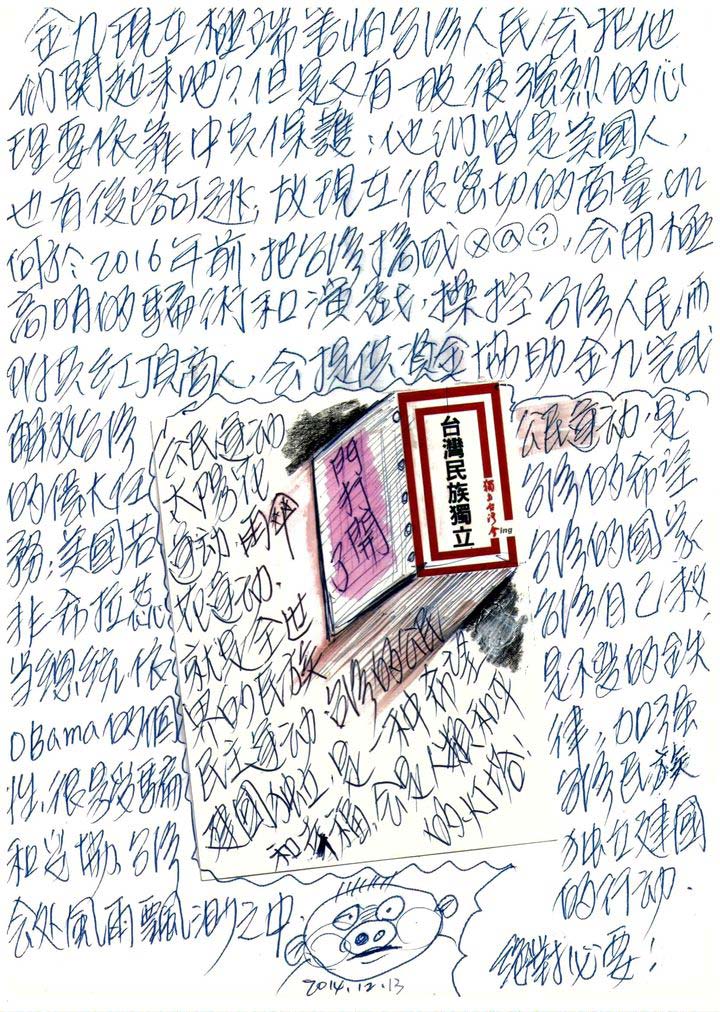 金九現在極端害怕台湾人民会把他
們関起来吧?但是又有一股很強烈的心
理要依靠中共保護;他們皆是美國人,
也有後路可逃;故現在很密切的商量,如
何於2016年前,把台湾搞成ⓧⓐ?,会用極
高明的騙術和演戏,操控台湾人民,而
附共紅頂商人,会提供資金協助金九完成
解放台湾
的偉大任
務;美國若
非希拉蕊
当總統,依
OBama的個
性,很易受騙
和妥協,台湾
会处風雨飄渺之中.
公民運动
太陽花
運动,雨伞
花運动.
就是全世
界的民族
民主運动.台湾的公民
建國独立,是一种希望
和幸福,会是人類和平
的灯塔!
門打開了
台灣民族獨立
獨立台灣會
ing
公民運动,是
台湾的希望
台湾的國家
台湾自己救
是不变的金夫
律,加強
台湾民族
独立建國
的行动.
絕對必要!
2014.12.13